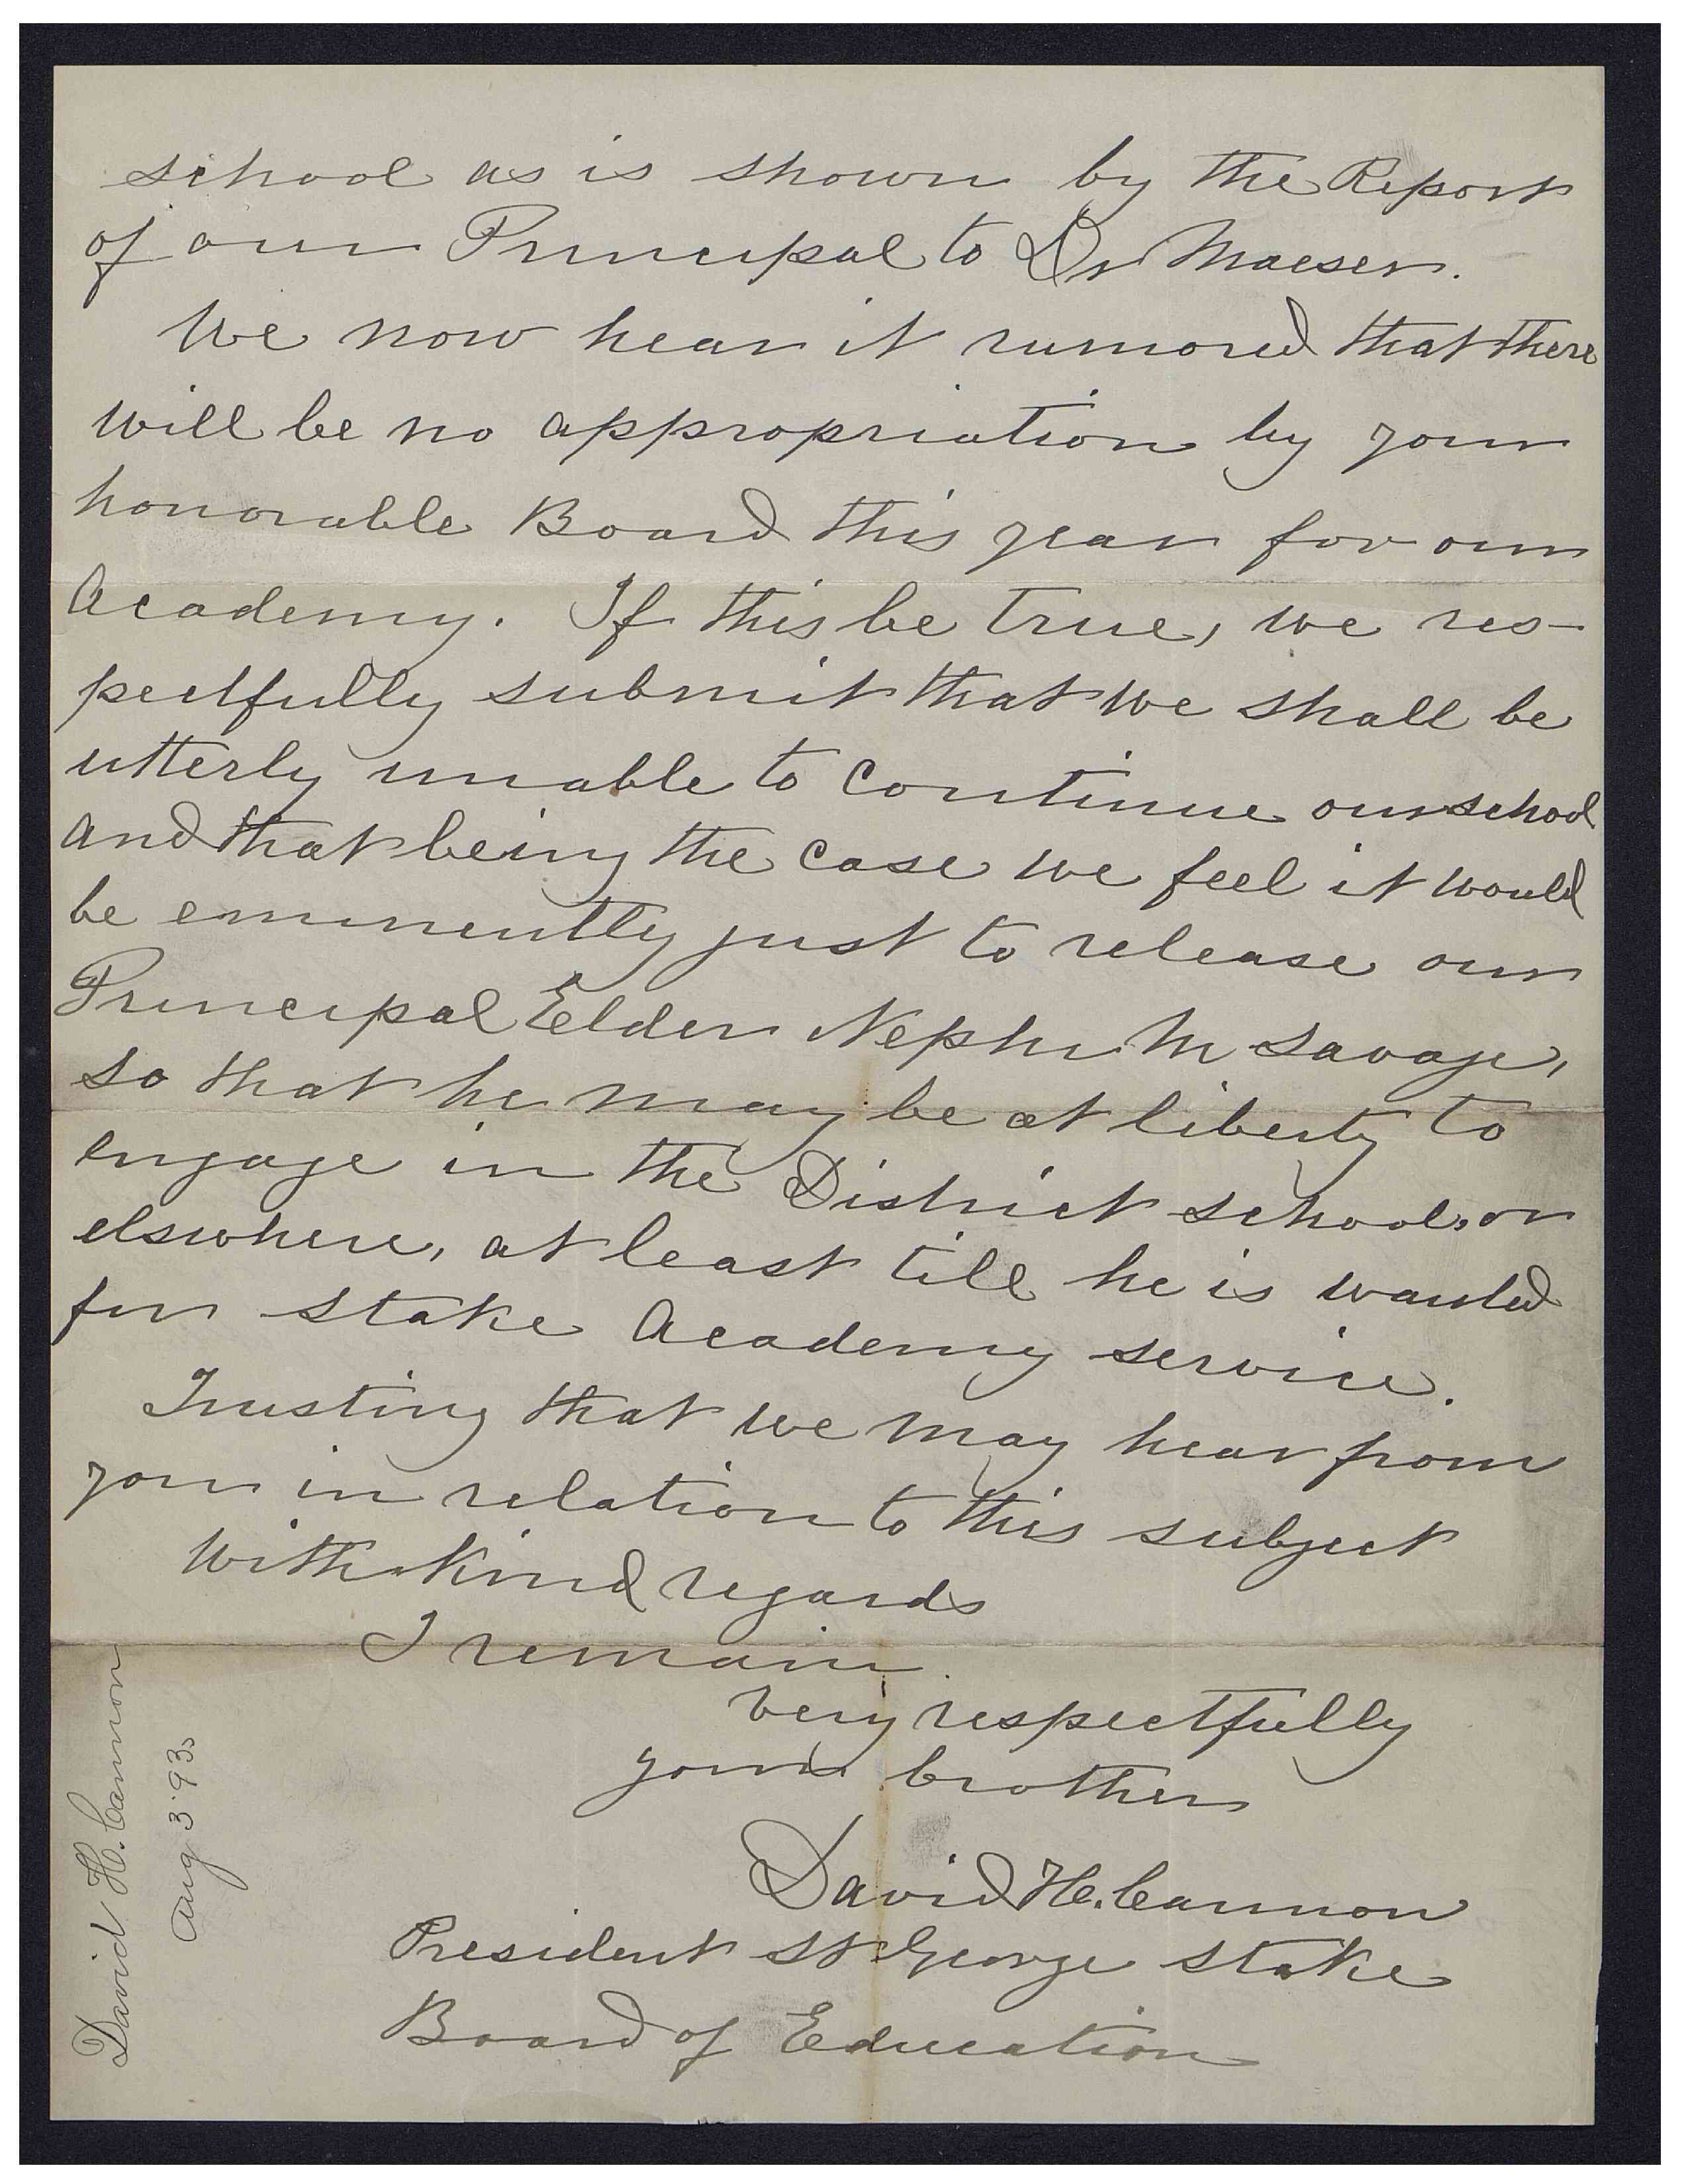 school as is shown by the Report
of our Principal to Dr Maeser.
We now hear it rumored that there
will be no appropriation by your
honorable Board this year for our
Academy. If this be true, we res-
pectfully submit that we shall be
utterly unable to continue our school
and that being the case we feel it would
be eminently just to release our
Principal Elder Nephi M Savage,
so that he may be at liberty to
engage in the District school, or
elswhere, at least till he is wanted
for Stake Academy service.
Trusting that we may hear from
you in relation to this subject
With Kind regards
I remain
very respectfully
your brother
David H. Cannon
President St George Stake
Board of Education
David H. Cannon
Aug 3. 93.